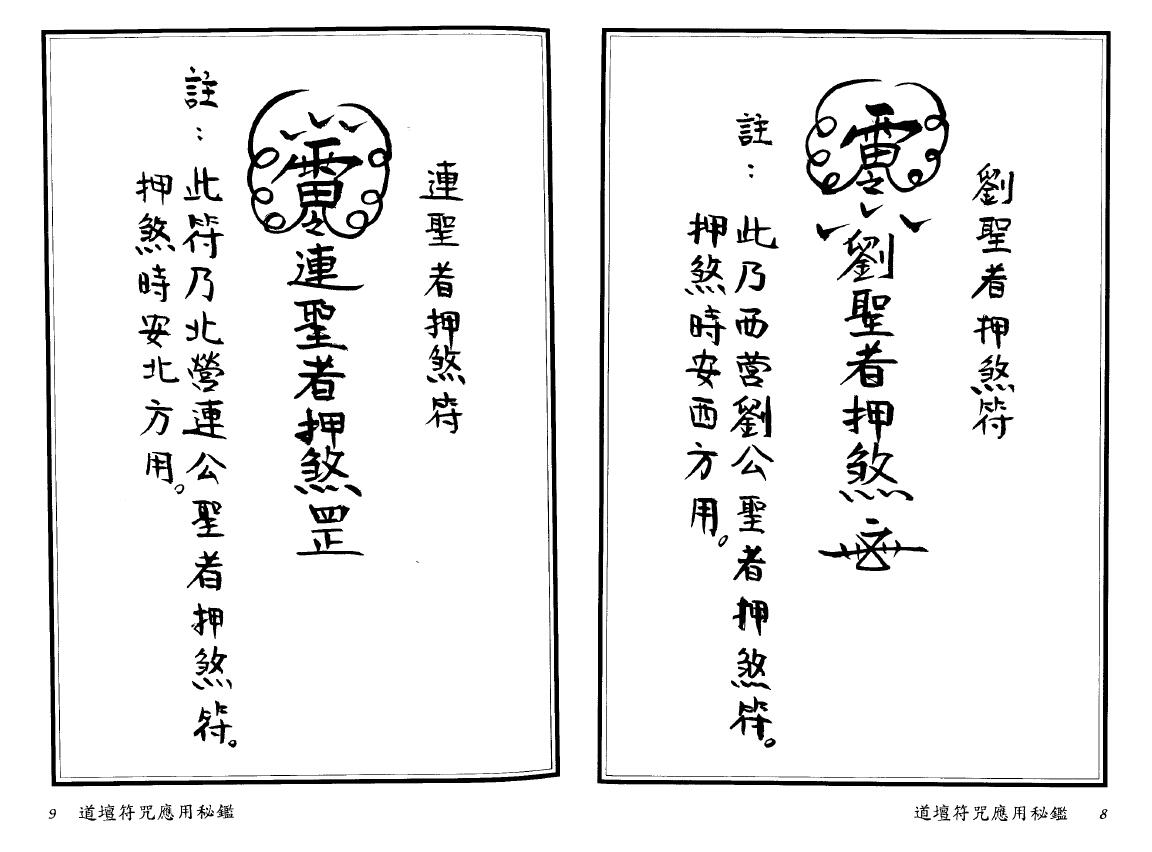 劉聖者押煞符
雷
劉聖者押煞
註：此乃西营劉公聖者押煞符。
押煞時安西方用。
道壇符咒應用秘鑑 8
連聖者押煞符
雷
連聖者押煞罡
註：此符乃北營連公聖者押煞符。
押煞時安北方用。
9 道壇符咒應用秘鑑